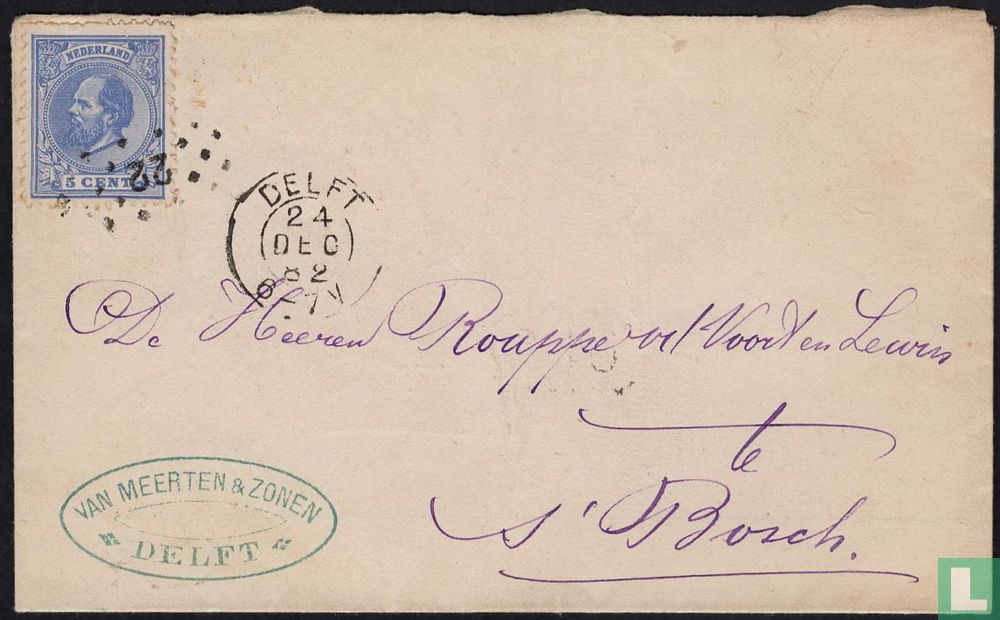 NEDERLAND
5 CENT
22
DELFT
24
DEC
82
8-7V
De Heeren Rouppe vd Voort en Lewin
te
s' Bosch.
VAN MEERTEN & ZONEN
DELFT
L